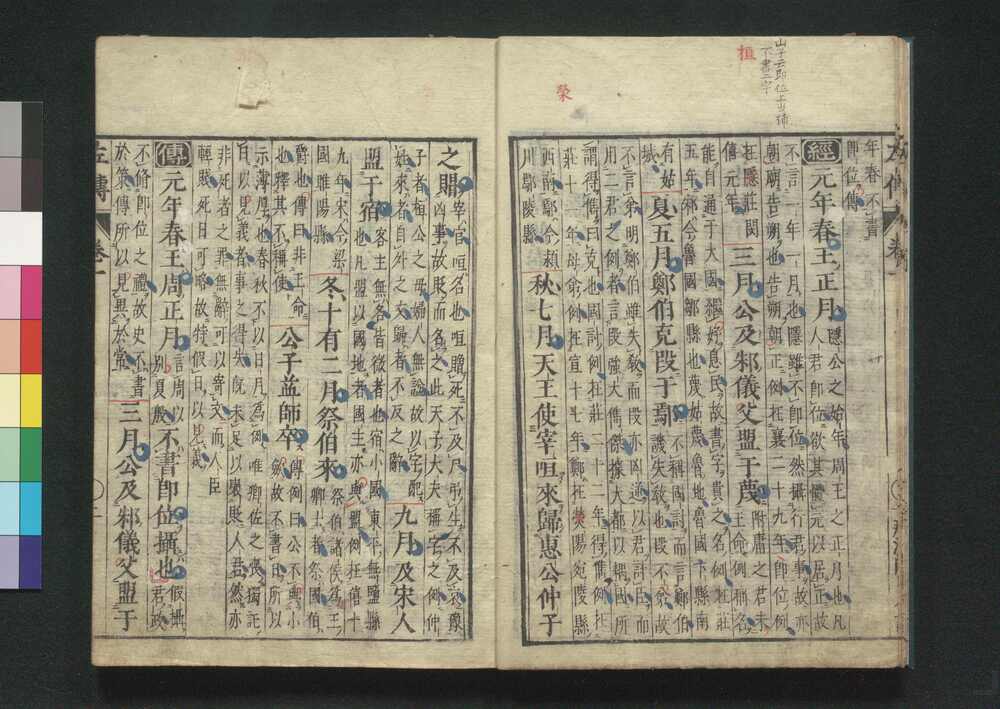 山子云即位上当補
不書二字
桓
榮
年春不書
即位傳
經元年春王正月
隱公之始年周王之正月也凡
人君即位欲其體元以居正故
不言一年一月也隱雖不即位然攝行君事故亦
朝廟告朔也告朔朝正例在襄二十九年即位例
在隱莊閔
僖元年
三月公及邾儀父盟于蔑
附庸之君未
王命例稱名
能自通于大國繼好息民故書字貴之名例在莊
五年邾今魯國鄒縣也蔑姑蔑魯地魯國卞縣南
有姑
城
夏五月鄭伯克段于鄢
不稱國討而言鄭伯
譏失教也段不弟故
不言弟明鄭伯雖失教而段亦凶逆以君討臣而
用二君之例者言段強大儁傑據大都以耦國所
謂得儁曰克也國討例在莊二十二年得儁例在
莊十一年母弟例在宣十七年鄭在滎陽宛陵縣
西南鄢今潁
川鄢陵縣
秋七月天王使宰咺來歸惠公仲子
之賵
宰官咺名也咺贈死不及尸弔生不及哀豫
凶事故貶而名之此天子大夫稱字之例仲
子者桓公之母婦人無謚故以字配
姓來者自外之文歸者不反之辭
九月及宋人
盟于宿
客主無名皆微者也宿小國東平無鹽縣
也凡盟以國地者國主亦與盟例在僖十
九年宋今梁
國睢陽縣
冬十有二月祭伯來
祭伯諸侯為王
卿士者祭國伯
爵也傳曰非王命
也釋其不稱使
公子益師卒
傳例曰公不與小
歛故不書日所以
示薄厚也春秋不以日月為例唯卿佐之喪獨託
日以見義者事之得失旣未足以褒貶人君然亦
非死者之罪無辭可以寄文而人臣
輕賤死日可略故特假日以見義
傳元年春王周正月
言周以
別夏殷
不書即位攝也
假攝
君政
不脩即位之禮故史不書
於策傳所以見異於常
三月公及邾儀父盟于
左傳 卷一